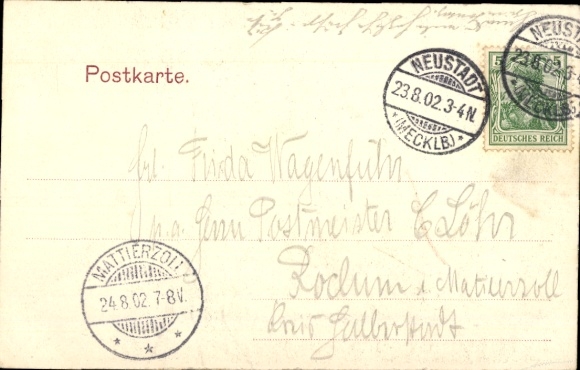 Postkarte.
NEUSTADT
23.8.02.3-4N.
*(MECKLB.)*
NEUSTADT
23.8.02.3-4N.
*(MECKLB.)*
5 5
DEUTSCHES REICH
Frl. Frida Wagenführ
Herrn Postmeister C Löhr
Roclum i. Mattierzoll
Kreis Halberstadt
MATTIERZOLL
24.8.02.7-8V.